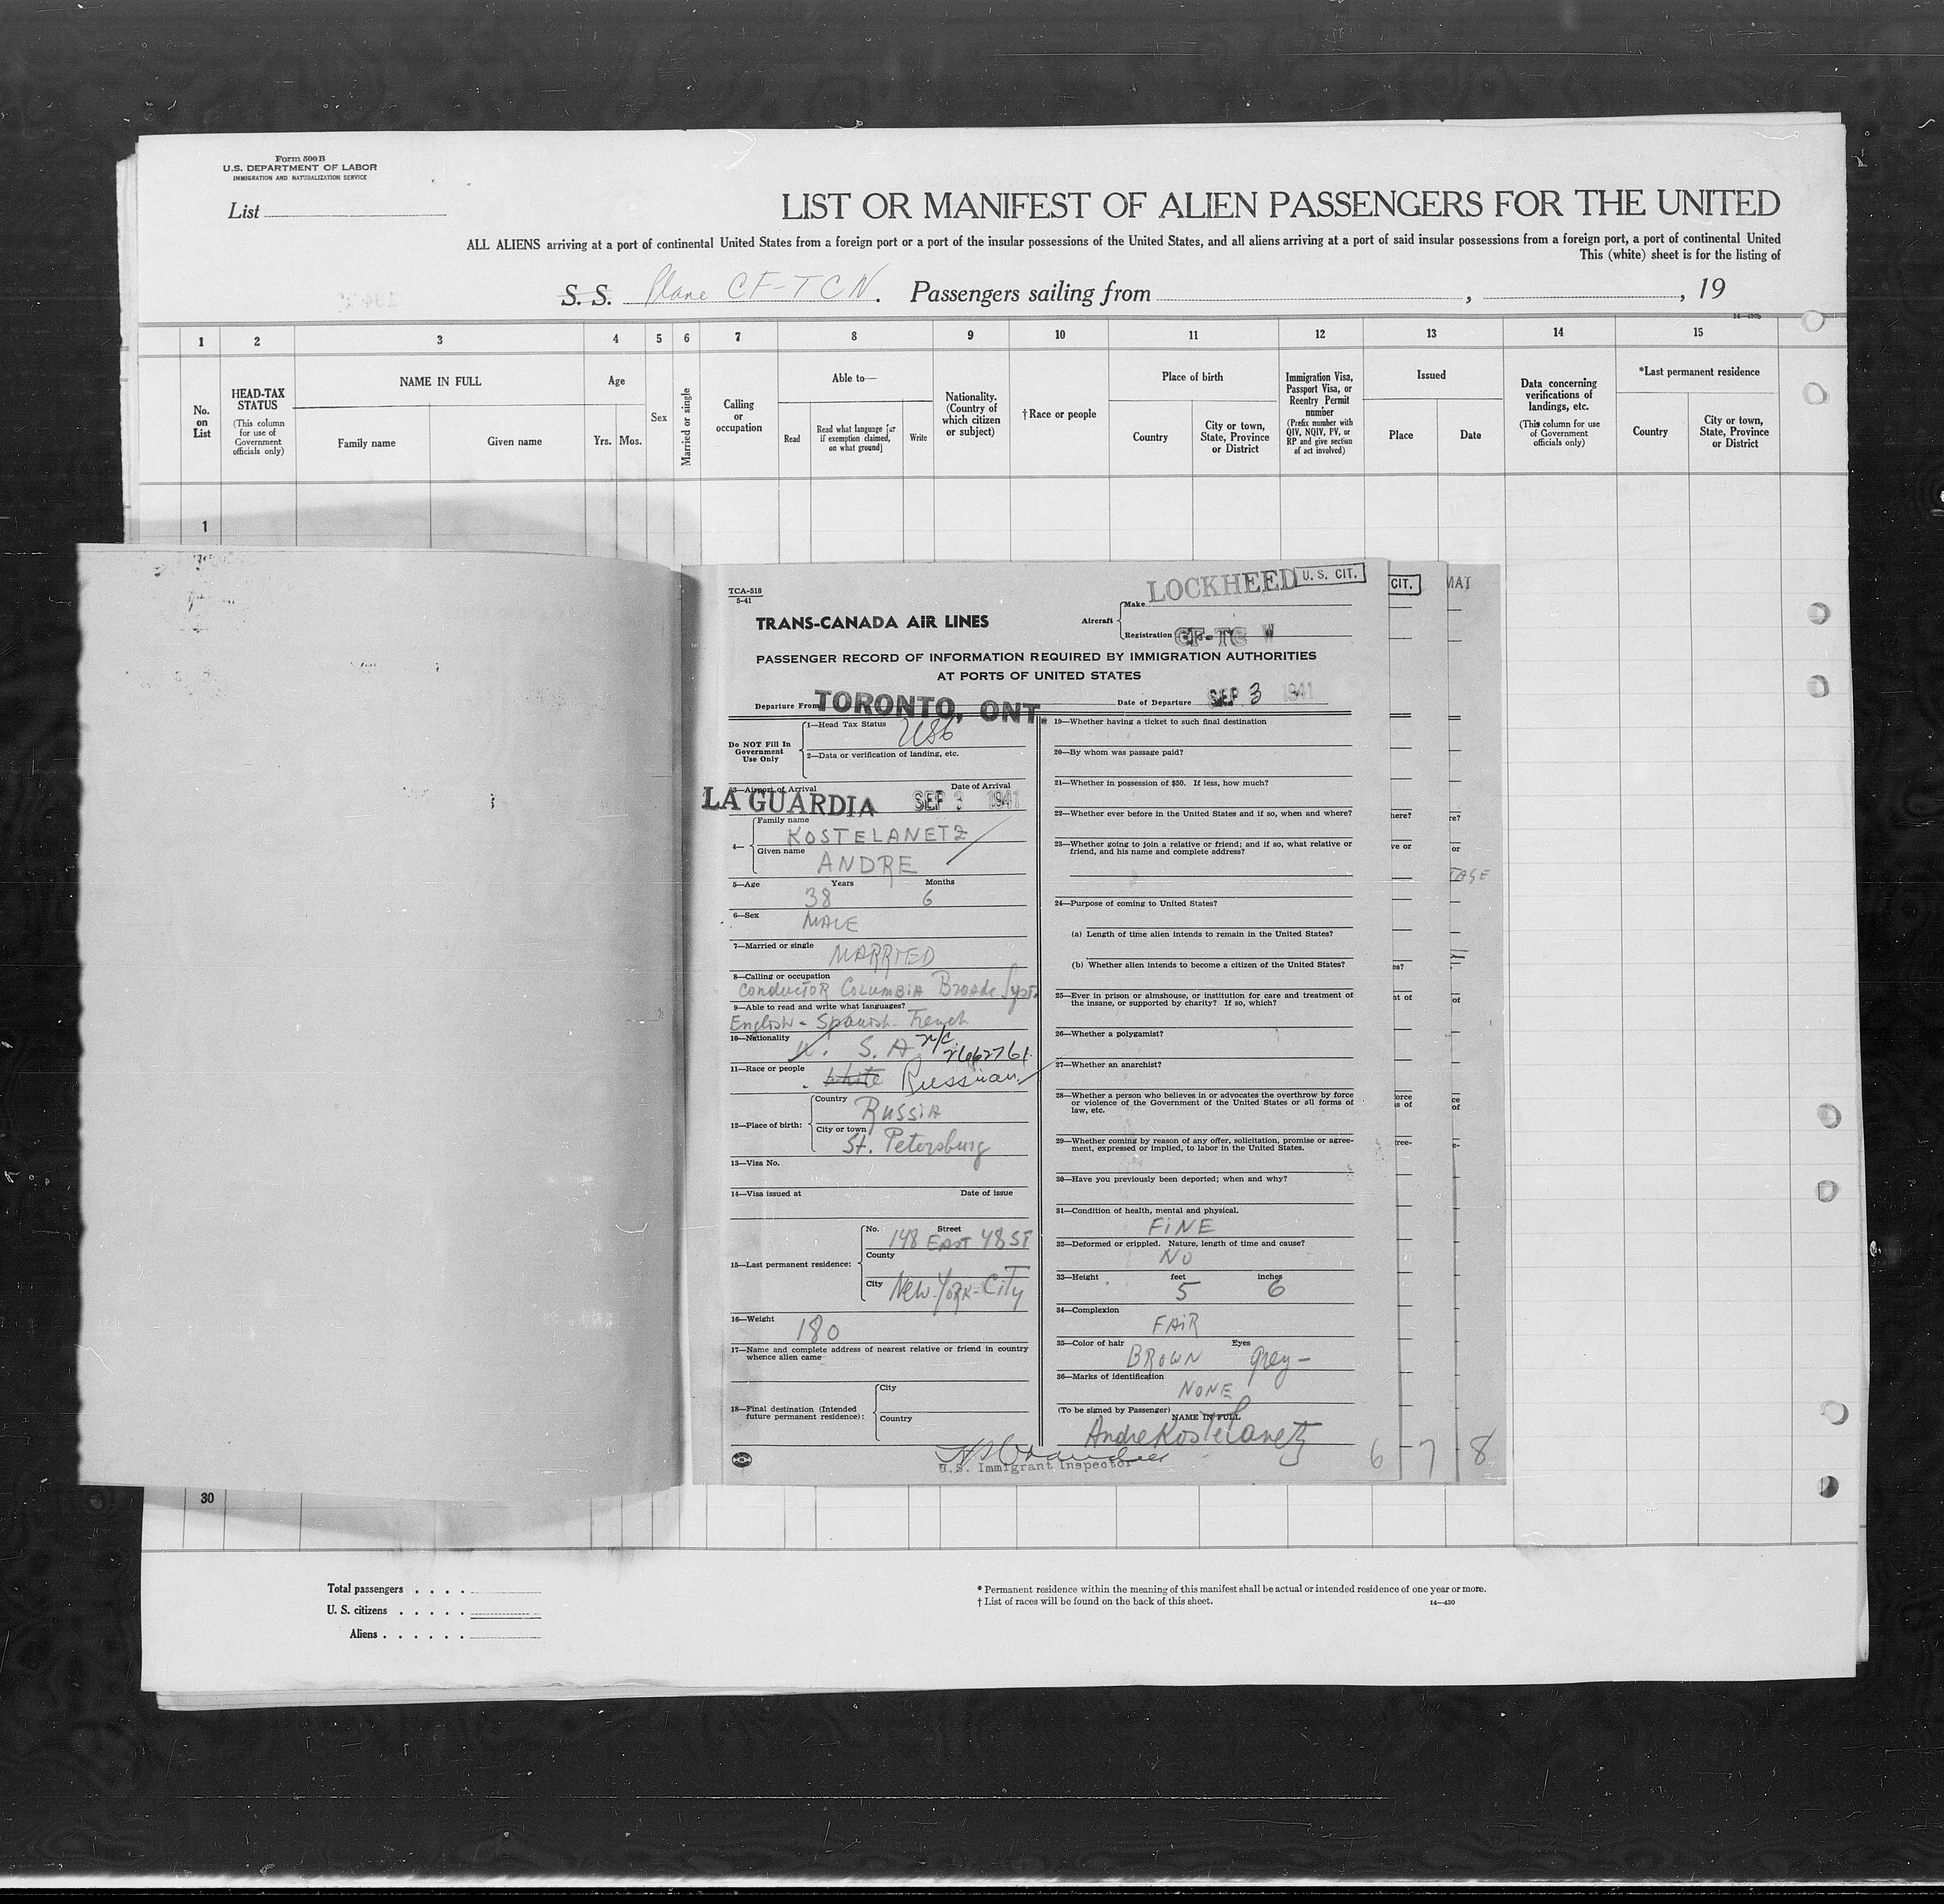 Form 500 B
U.S. DEPARTMENT OF LABOR
IMMIGRATION AND NATURALIZATION SERVICE
List
LIST OR MANIFEST OF ALIEN PASSENGERS FOR THE UNITED
ALL ALIENS arriving at a port of continental United States from a foreign port or a port of the insular possessions of the United States, and all aliens arriving at a port of said insular possessions from a foreign port, a port of continental United
This (white) sheet is for the listing of
S. S. Plane CF-TCN. Passengers sailing from , , 19
14—430b
1 2 3 4 5 6 7 8 9 10 11 12 13 14 15
No. on List
HEAD-TAX STATUS
(This column for use of Government officials only)
NAME IN FULL
Family name
Given name
Age
Yrs. Mos.
Sex
Married or single
Calling or occupation
Able to—
Read
Read what language [or if exemption claimed, on what ground]
Write
Nationality. (Country of which citizen or subject)
†Race or people
Place of birth
Country
City or town, State, Province or District
Immigration Visa, Passport Visa, or Reentry Permit number
(Prefix number with QIV, NQIV, PV, or RP and give section of act involved)
Issued
Place
Date
Data concerning verifications of landings, etc.
(This column for use of Government officials only)
*Last permanent residence
Country
City or town, State, Province or District
1
TCA-518
5-41
TRANS-CANADA AIR LINES
Aircraft
Make LOCKHEED
U. S. CIT.
Registration CF-TC W
PASSENGER RECORD OF INFORMATION REQUIRED BY IMMIGRATION AUTHORITIES
AT PORTS OF UNITED STATES
Departure From TORONTO, ONT.
Date of Departure SEP 3 1941
Do NOT Fill In Government Use Only
1—Head Tax Status
2—Data or verification of landing, etc.
3—Airport of Arrival Date of Arrival
LA GUARDIA SEP 3 1941
4— Family name
KOSTELANETZ
Given name
ANDRE
5—Age Years Months
38 6
6—Sex
MALE
7—Married or single
MARRIED
8—Calling or occupation
Conductor Columbia Broadc Syst.
9—Able to read and write what languages?
English - Spanish - French
10—Nationality
U. S. A 2662761
11—Race or people
white Russian
12—Place of birth:
Country
Russia
City or town
St. Petersburg
13—Visa No.
14—Visa issued at Date of issue
15—Last permanent residence:
No. Street
148 East 48 ST
County
City New-York-City
16—Weight
180
17—Name and complete address of nearest relative or friend in country whence alien came
18—Final destination (Intended future permanent residence):
City
Country
19—Whether having a ticket to such final destination
20—By whom was passage paid?
21—Whether in possession of $50. If less, how much?
22—Whether ever before in the United States and if so, when and where?
23—Whether going to join a relative or friend; and if so, what relative or friend, and his name and complete address?
24—Purpose of coming to United States?
(a) Length of time alien intends to remain in the United States?
(b) Whether alien intends to become a citizen of the United States?
25—Ever in prison or almshouse, or institution for care and treatment of the insane, or supported by charity? If so, which?
26—Whether a polygamist?
27—Whether an anarchist?
28—Whether a person who believes in or advocates the overthrow by force or violence of the Government of the United States or all forms of law, etc.
29—Whether coming by reason of any offer, solicitation, promise or agreement, expressed or implied, to labor in the United States.
30—Have you previously been deported; when and why?
31—Condition of health, mental and physical.
FINE
32—Deformed or crippled. Nature, length of time and cause?
NO
33—Height feet inches
5 6
34—Complexion
FAIR
35—Color of hair Eyes
BROWN grey-
36—Marks of identification
NONE
(To be signed by Passenger)
NAME IN FULL
Andre Kostelanetz
U.S. Immigrant Inspector
6 7 8
30
Total passengers . . . .
U. S. citizens . . . . .
Aliens . . . . . .
* Permanent residence within the meaning of this manifest shall be actual or intended residence of one year or more.
† List of races will be found on the back of this sheet.
14—430